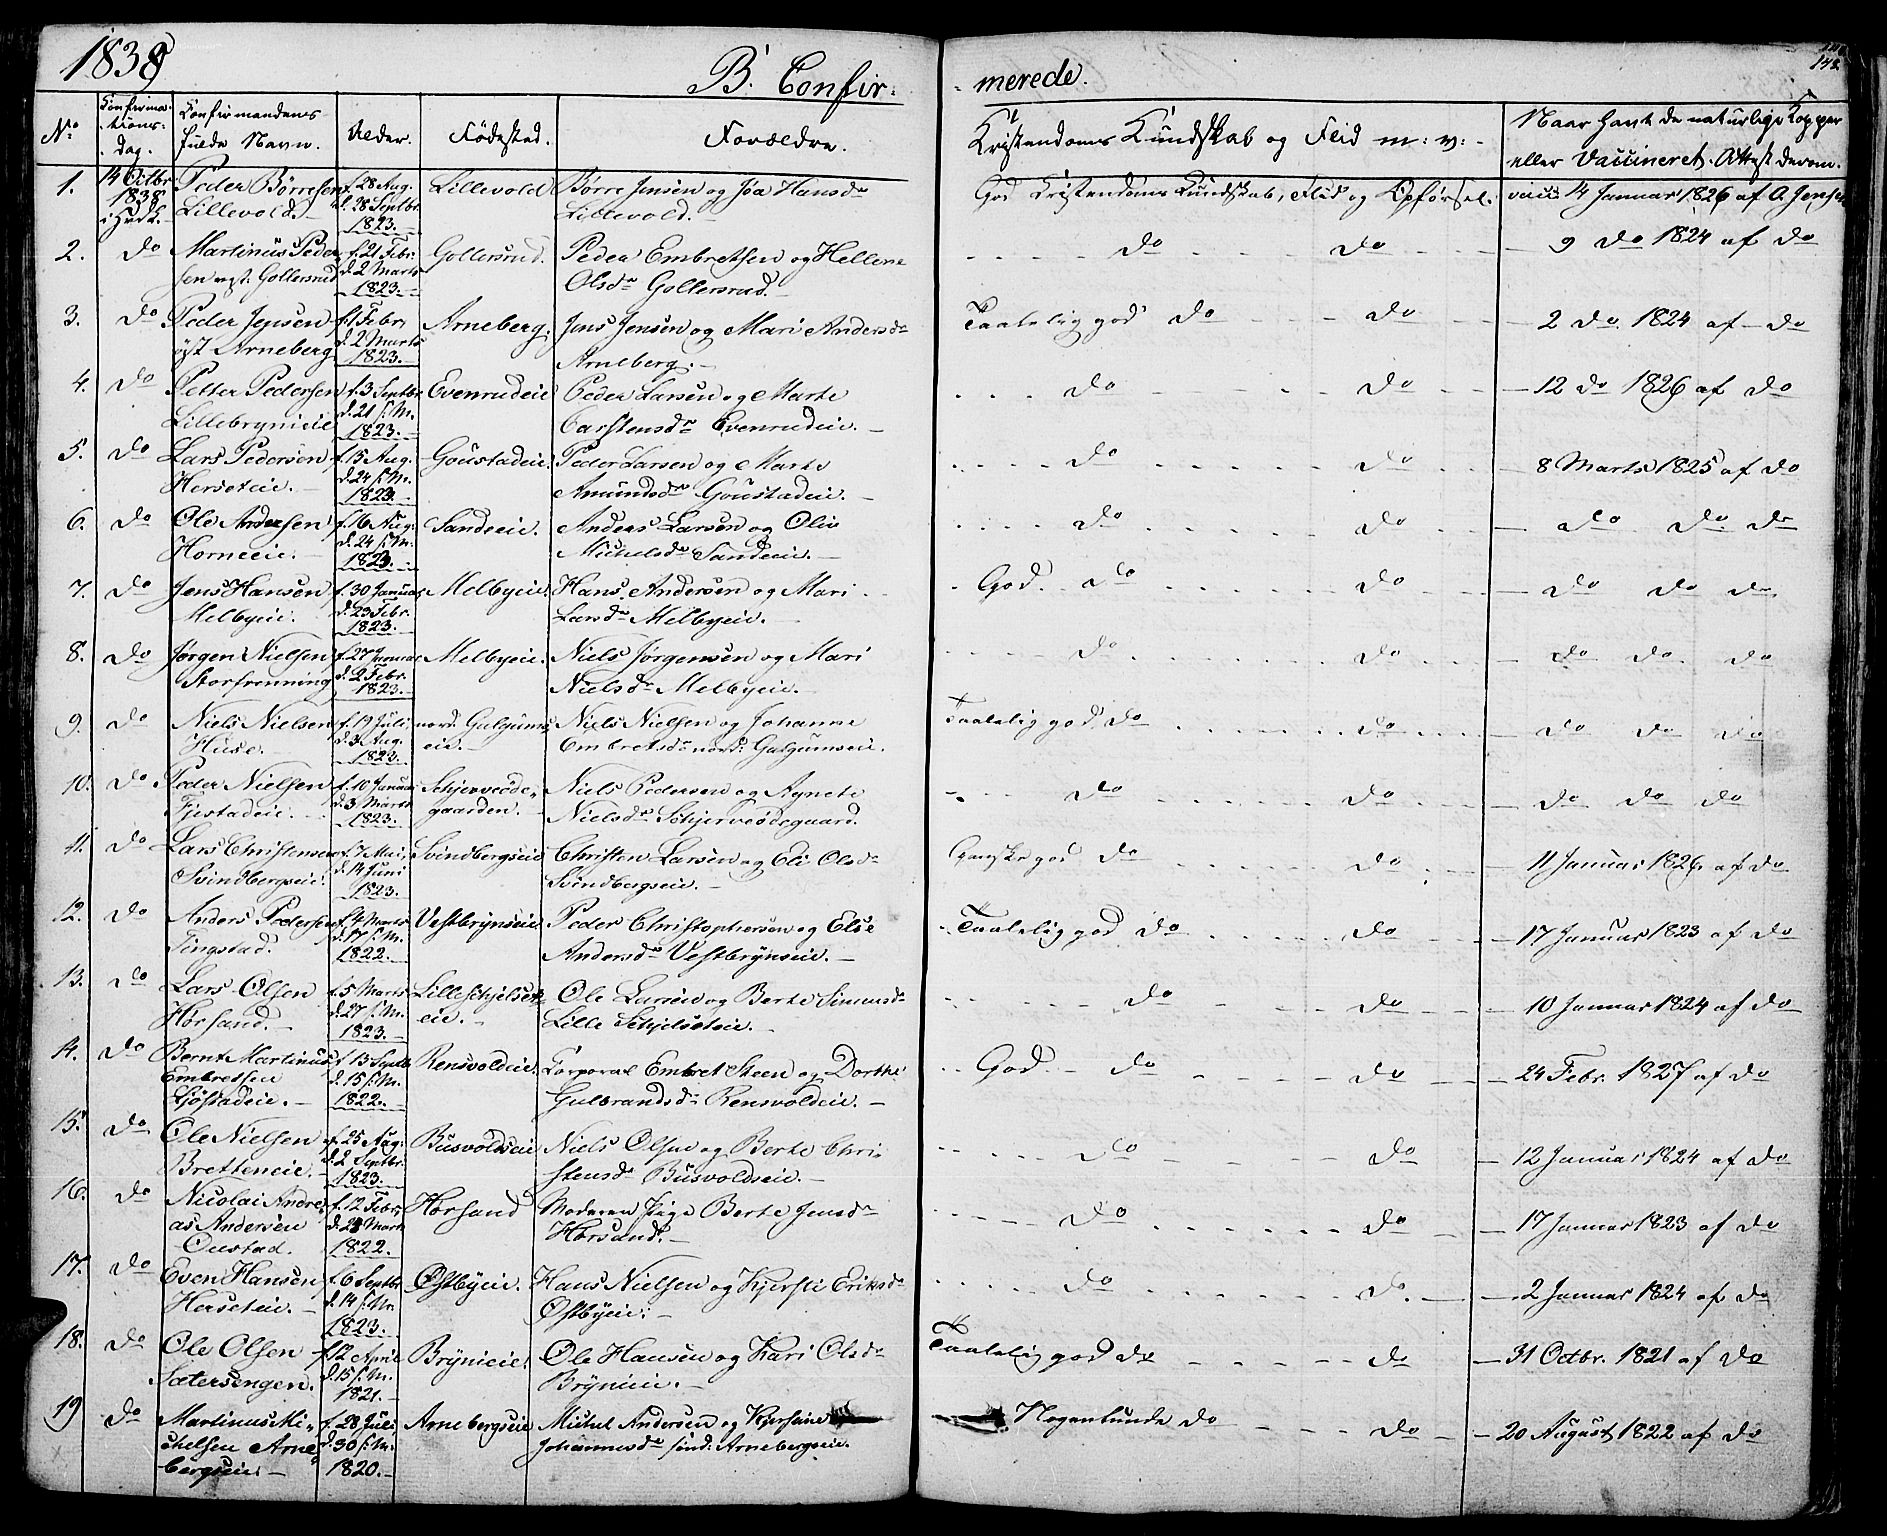 1838
B. Confir-
merede.
148.
No
Confirma-
tions-
Dag.
Confirmandens
fulde Navn.
Alder.
Fødested.
Forældre.
Kristendoms Kundskab og Flid m: v:
Naar havt de naturlige Kopper
eller Vaccineret. Attest derom.
1.
14 Octbr
1838
Peder Børresen
Lillevold.
f. 28 Aug.
d. 28 Septbr.
1823.
Lillevold
Børre Jensen og Joa Hansdr
Lillevold.
God Kristendoms Kundskab, Flid og Opførsel.
vacc 4 Januar 1826 af A Jensen
2.
do
Martinus Peder
sen vest. Gollersrud
f. 21 Febr.
d. 2 Marts
1823.
Gollersrud.
Peder Embretsen og Hellene
Olsdr Gollersrud.
do do
9 do 1824 af do
3.
do
Peder Jensen
øst Arneberg
f. 1 Febr.
d. 2 Marts
1823.
Arneberg.
Jens Jensen og Mari Andersdr
Arneberg.
Taalelig god do do
2 do 1824 af do
4.
do
Petter Pedersen
Lillebrynieie
f. 3 Septbr
d. 21 s. M.
1823.
Evenrudeie
Peder Larsen og Marte
Carstensdr Evenrudeie.
do do
12 do 1826 af do
5.
do
Lars Pedersen
Herseteie.
f. 15 Aug.
d. 24 s. M.
1823
Goustadeie.
Peder Larsen og Marte
Amundsdr Goustadeie.
do do
8 Marts 1825 af do
6.
do
Ole Andersen
Horneeie.
f. 16 Aug.
d. 24 s. M.
1823.
Sandeeie.
Anders Larsen og Olia
Michelsdr Sandeeie.
do do
do do do
7.
do
Jens Hansen
Melbyeie.
f. 30 Januar
d. 23 Febr.
1823.
Melbyeie.
Hans Andersen og Mari
Larsdr Melbyeie.
God. do do
do do do
8.
do
Jørgen Nielsen
Storfrenning
f. 27 Januar
d. 2 Febr.
1823.
Melbyeie.
Niels Jørgensen og Mari
Nielsdr Melbyeie.
do do
do do do
9.
do
Niels Nielsen
Huse.
f. 19 Juli
d. 3 Aug.
1823.
nord. Gulgums
eie.
Niels Nielsen og Johanne
Embretsdr nord. Gulgumseie.
Taalelig god do do
do do do
10.
do
Peder Nielsen
Fjestadeie.
f. 10 Januar
d. 3 Marts
1823.
Schjerveøde-
gaarden.
Niels Pedersen og Agnete
Nielsdr Schjerveødegaard.
do do
do do do
11.
do
Lars Christensen
Svindbergseie.
f. 7 Mai
d. 14 Juni
1823.
Svindbergseie
Christen Larsen og Eli Olsdr
Svindbergseie.
Ganske god do do
11 Januar 1826 af do
12.
do
Anders Pedersen
Tingstad.
f. 4 Marts
d. 17 s. M.
1822.
Vestbrynseie
Peder Christophersen og Else
Andersdr Vestbrynseie.
Taalelig god do do
17 Januar 1823 af do
13.
do
Lars Olsen
Hørsand.
f. 5 Marts
d. 27 s. M.
1823.
Lilleschjelset
eie.
Ole Larsen og Berte Simensdr
Lille Schjelseteie.
do do
10 Januar 1824 af do
14.
do
Bernt Martinus
Embretsen
Kjøstadeie.
f. 13 Septb
d. 15 s. M.
1822.
Rensvoldeie.
Corporal Embret Steen og Dorthe
Gulbrandsdr Rensvoldeie.
God do do
24 Febr. 1827 af do
15.
do
Ole Nielsen
Bretteneie.
f. 25 Aug.
d. 2 Septbr.
1823.
Busvoldseie
Niels Olsen og Berte Chri
stensdr Busvoldseie.
do do
12 Januar 1824 af do
16.
do
Nicolai Andre
as Andersen
Oustad.
f. 12 Febr.
d. 24 Marts
1822.
Hørsand
Moderen Pige Berte Jensdr
Hørsand.
do do
17 Januar 1823 af do
17.
do
Even Hansen
Herseteie.
f. 6 Septbr
d. 14 s. M.
1823.
Østbyeie.
Hans Nielsen og Kjersti Eriksdr
Østbyeie.
do do
2 Januar 1824 af do
18.
do
Ole Olsen
Sætersengen.
f. 12 April
d. 15 s. M.
1821.
Brynieie.
Ole Hansen og Kari Olsdr
Brynieie.
Taalelig god do do
31 Octbr. 1821 af do
19
do
Martinus Mi-
chelsen Arne-
bergseie.
f. 28 Juli
d. 30 s. M.
1820.
Arnebergseie
Michel Andersen og Kjerstine
Johannesdr sønd. Arnebergseie.
Nogenlunde do do
20 August 1822 af do